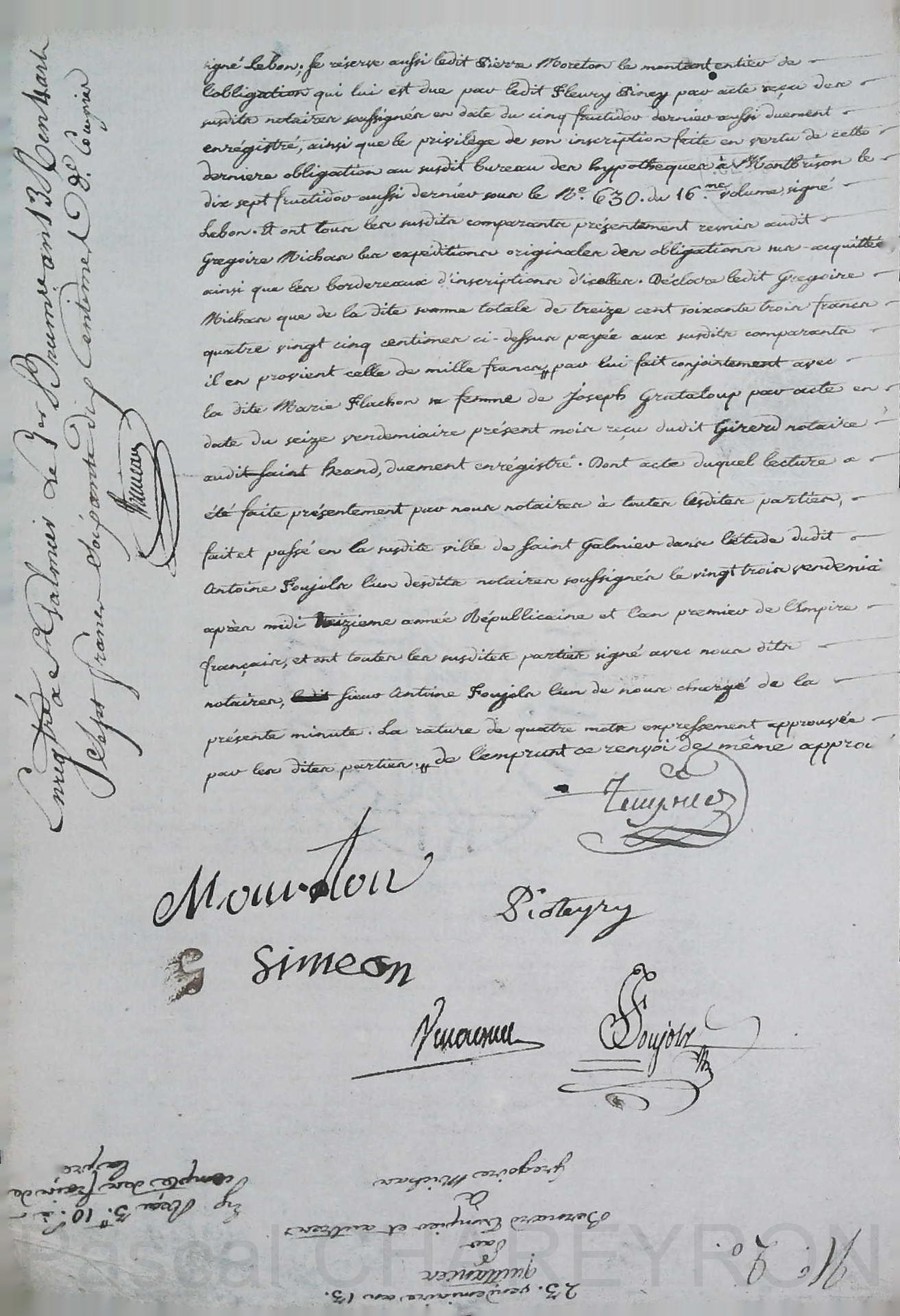 signé Lebon. Se réserve aussi ledit Pierre Moreton le montant entier de
l'obligation qui lui est due par ledit Fleury Piney par acte reçu des
susdits notaires soussignés en date du cinq fructidor dernier aussi duement
enrégistré, ainsi que le privilège de son inscription faite en vertu de cette
derniere obligation au susdit bureau des hypotheques à Montbrison le
dix sept fructidor aussi dernier sous le N.o 630. du 16.me volume, signé
Lebon. Et ont tous les susdits comparants présentement remis audit
Gregoire Michas les expéditions originales des obligations sus-acquittées
ainsi que les bordereaux d'inscriptions d'icelles. Déclare ledit Gregoire
Michas que de la dite somme totale de treize cent soixante trois francs
quatre vingt cinq centimes ci-dessus payée aux susdits comparants
il en provient celle de mille francs,, par lui fait conjointement avec
la dite Marie Flachon sa femme de Joseph Grataloup par acte en
date du seize vendemiaire présent mois reçu dudit Girerd notaire
audit Saint Heand, duement enrégistré. Dont acte duquel lecture a
été faite présentement par nous notaires à toutes lesdites parties,
fait et passé en la susdite ville de Saint Galmier dans l'étude dudit
Antoine Foujols l'un desdits notaires soussignés le vingt trois vendemiai
après midi treizieme année Républicaine et l'an premier de l'Empire
français, et ont toutes les susdites parties signé avec nous dits
notaires, sieur Antoine Foujols l'un de nous chargé de la
présente minute. La rature de quatre mots expressement approuvée
par les dites parties. ,, de l'emprunt ce renvoi de même approu
Mourton
Simeon
Foujols
Enregistré à St Galmier le 3er Brumaire an 13
Sept francs cinquante dix Centimes
23. vendemiaire an 13.
quittances
Par
Bernard et autres
à
Gregoire Michas
N.o 20.
Pascal CHAREYRON